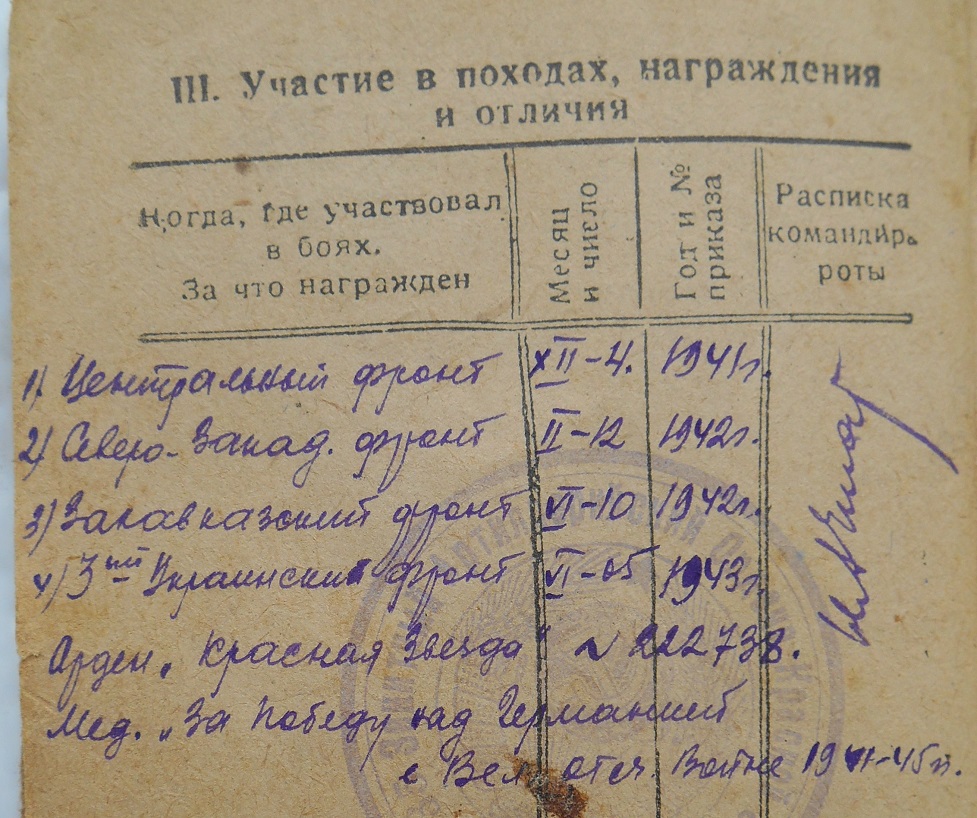 III. Участие в походах, награждения
и отличия
Когда, где участвовал
в боях.
За что награжден
Месяц
и число
Год и №
приказа
Расписка
командир.
роты
1) Центральный фронт XII-4. 1941г.
2) Северо-Запад. фронт II-12 1942г.
3) Закавказский фронт VI-10 1942г.
4) 3ий Украинский фронт VI-05 1943г.
Орден „Красная Звезда" № 222738.
Мед. „За победу над Германией
в Вел. отеч. Войне 1941-45г.